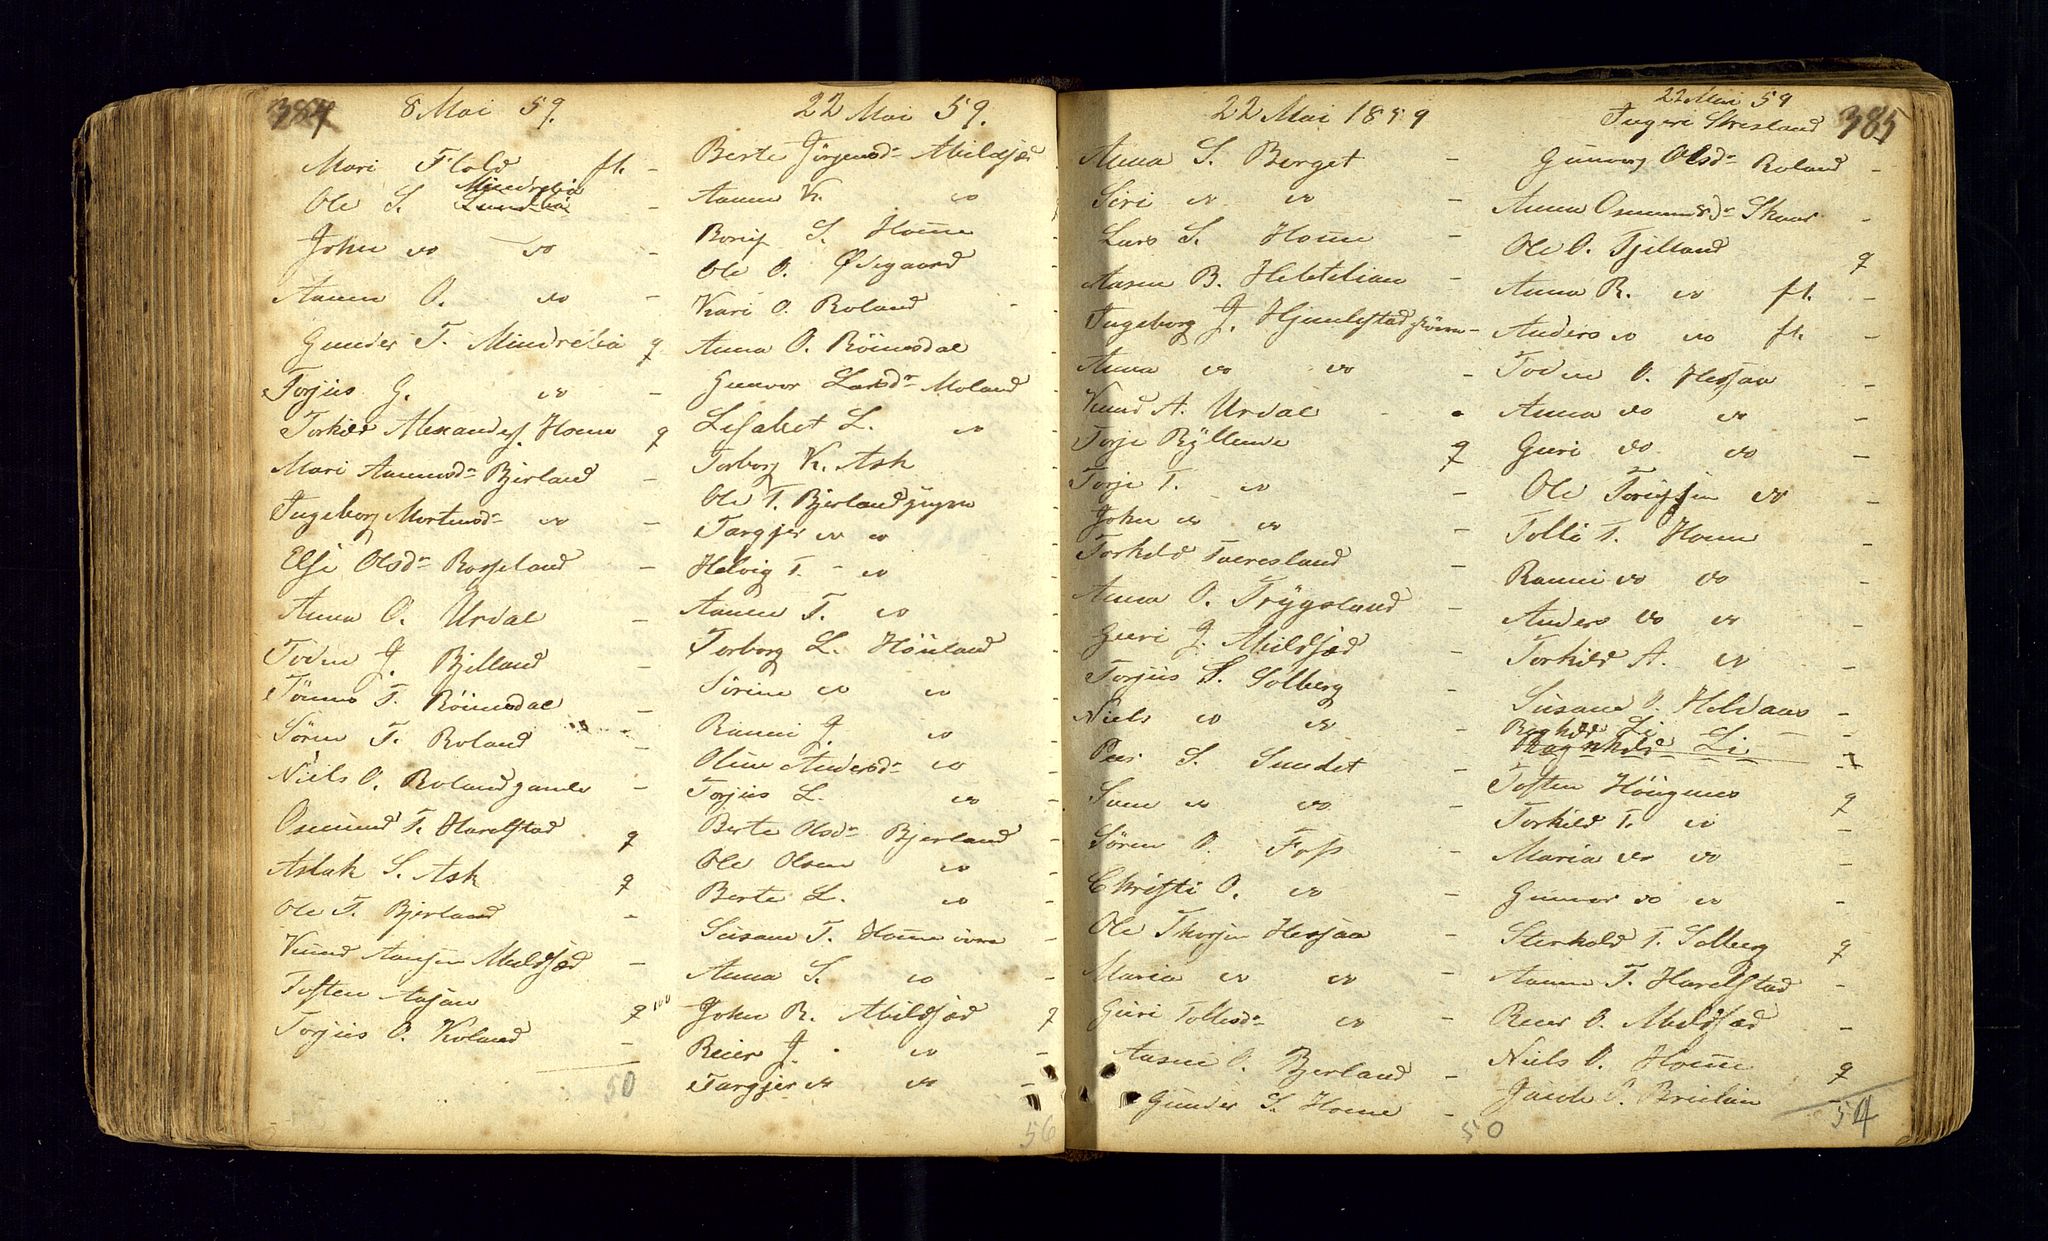 384
8 Mai 59.
Mari Flold ft. -
Ole S. Mindrebø -
John do do -
Aanen O. do -
Gunder T. Mindrebø g
Torjus G. do -
Torkild Alexanders. Home g
Mari Aanensdr Bjerland -
Ingeborg Mortensd- do -
Else Olsdr Rosseland -
Anna O. Urdal -
Joren J. Bjelland -
Tønnes T. Röinesdal -
Søren T. Roland -
Niels O. Roland gamle -
Osmund T. Harelstad g
Aslak S. Ask g
Ole T. Bjerland -
Knud Aansen Mildsæd -
Tosten Aasan g
Torjus O. Roland -
50
22 Mai 59.
Berte Jörgensdr Abildsæ
Aanen K. do
Boruf S. Home
Ole O. Ødegaard
Kari O. Roland -
Anna O. Röinesdal
Gunvor Larsdr Moland
Lisabet L. do
Torborg K. Ask
Ole T. Bjerland yngre
Targjer do do
Helvig T. - do
Aanen T. do
Torborg L. Höiland
Sörine do do
Ranni J. do
Oline Andersdr do
Torjus L. do -
Berte Olsdr Bjerland -
Ole Olsen do -
Berte L. do -
Susane T. Home övre -
Anna S. do -
100 John R. Abildsæd g
Reier J. do -
Targjer do do -
56
22 Mai 1859
Anna S. Berget -
Siri do do -
Lars S. Home -
Aasen B. Hebtelian -
Ingeborg J. Hjemlestad -
Anna do do -
Knud A. Urdal -
Torje Ryllende g
Torje T. do -
John do do -
Torkild Tveresland -
Anna O. Trygsland -
Guri J. Abildsæd -
Torjus S. Solberg -
Niels do do -
Peer S. Sundet -
Sven do do -
Sören O. Foss -
Christi O. do -
Ole Thorsen Hesjaa -
Maria do do -
Guri Tollesdr do -
Aasne O. Bjerland -
Gunder S. Home -
50
22 Mai 59
385
Ingeri Skresland
Gunvor Olsdr Roland -
Anna Osmundsdr Skaar -
Ole O. Tjelland g
Anna R. do ft. -
Anders do do ft. -
Joren O. Hesjaa -
Anna do do -
Guri do do -
Ole Torisen do -
Tolle T. Home -
Ranni do do -
Anders do do -
Torkild A. do -
Susane O. Heldaas -
Ragnhild Li
Ragnhild Li -
Tosten Höignes g
Torkild T. do -
Maria do do -
Gunvor do do -
Sterkold T. Solberg g
Aanen T. Harelstad -
Reier O. Mildsæd -
Niels O. Home g
Jacob O. Brielien -
54